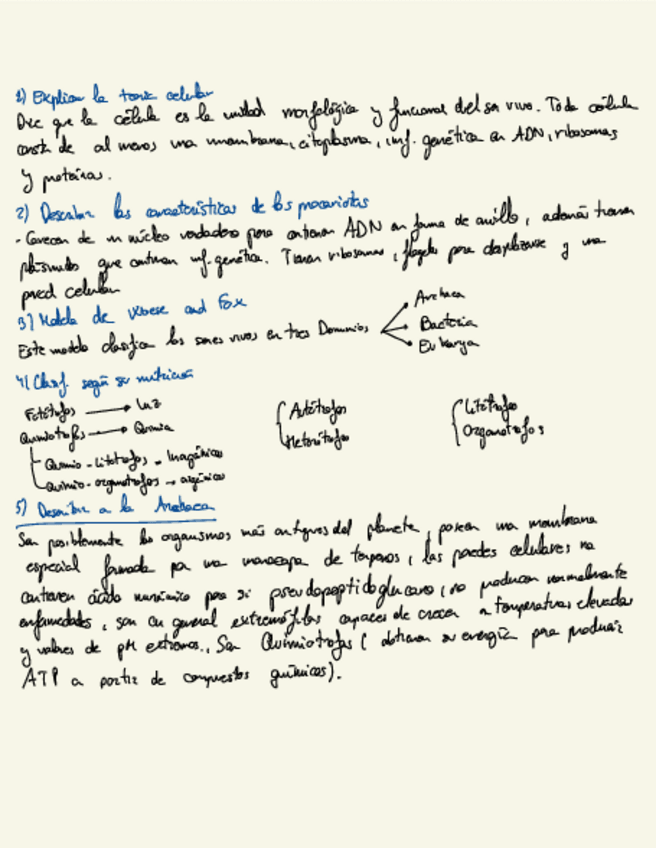 1) Explicar la teoría celular
Dice que la célula es la unidad morfológica y funcional del ser vivo. Toda célula
consta de al menos una membrana, citoplasma, inf. genética en ADN, ribosomas
y proteínas.
2) Describir las características de los procariotas
- Carecen de un núcleo verdadero pero contienen ADN en forma de anillo, además tienen
plásmidos que contienen inf. genética. Tienen ribosomas, flagelo para desplazarse y una
pared celular
3) Modelo de Woese and Fox
Este modelo clasifica los seres vivos en tres Dominios
Archaea
Bacteria
Eukarya
4) Clasif. según su nutrición
Fotótrofos → Luz
Quimiotrofos → Química
Quimio-litotrofos - Inorgánicos
Quimio-organotrofos → orgánicos
Autótrofos
Heterótrofos
Litótrofos
Organotrofos
5) Describir a la Archaea
Son posiblemente los organismos más antiguos del planeta, poseen una membrana
especial formada por una monocapa de terpenos, las paredes celulares no
contienen ácido murámico pero si pseudopeptidoglucano, no producen normalmente
enfermedades, son en general extremófilos capaces de crecer a temperaturas elevadas
y valores de pH extremos., Son Quimiotrofas (obtienen su energía para producir
ATP a partir de compuestos químicos).